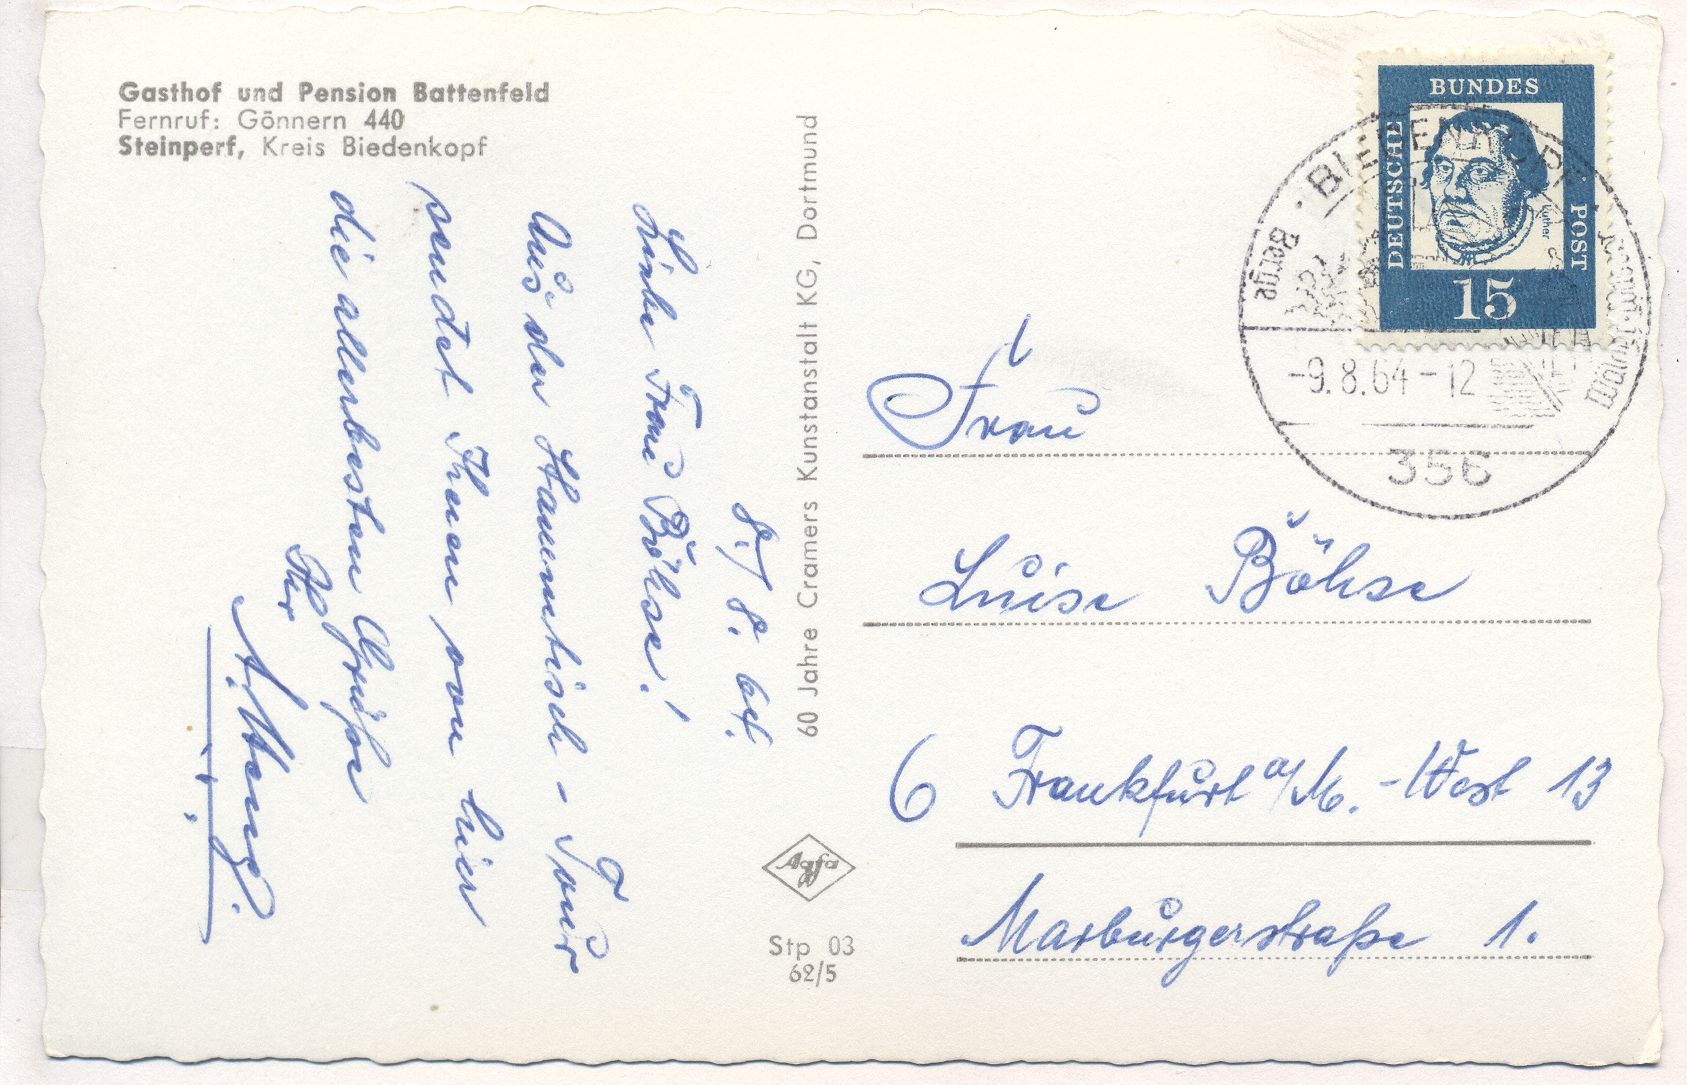 Gasthof und Pension Battenfeld
Fernruf: Gönnern 440
Steinperf, Kreis Biedenkopf
8./8. 64.
Liebe Frau Böhse!
Aus der Stammtisch-Tour
sendet Ihnen von hier
die allerbesten Grüße
Ihr
60 Jahre Cramers Kunstanstalt KG, Dortmund
Agfa
Stp 03
62/5
BUNDES
DEUTSCHE
POST
Luther
15
BIEDENKOPF
Berge
-9.8.64-12
356
Frau
Luise Böhse
6 Frankfurt a/M.-West 13
Marburgerstraße 1.